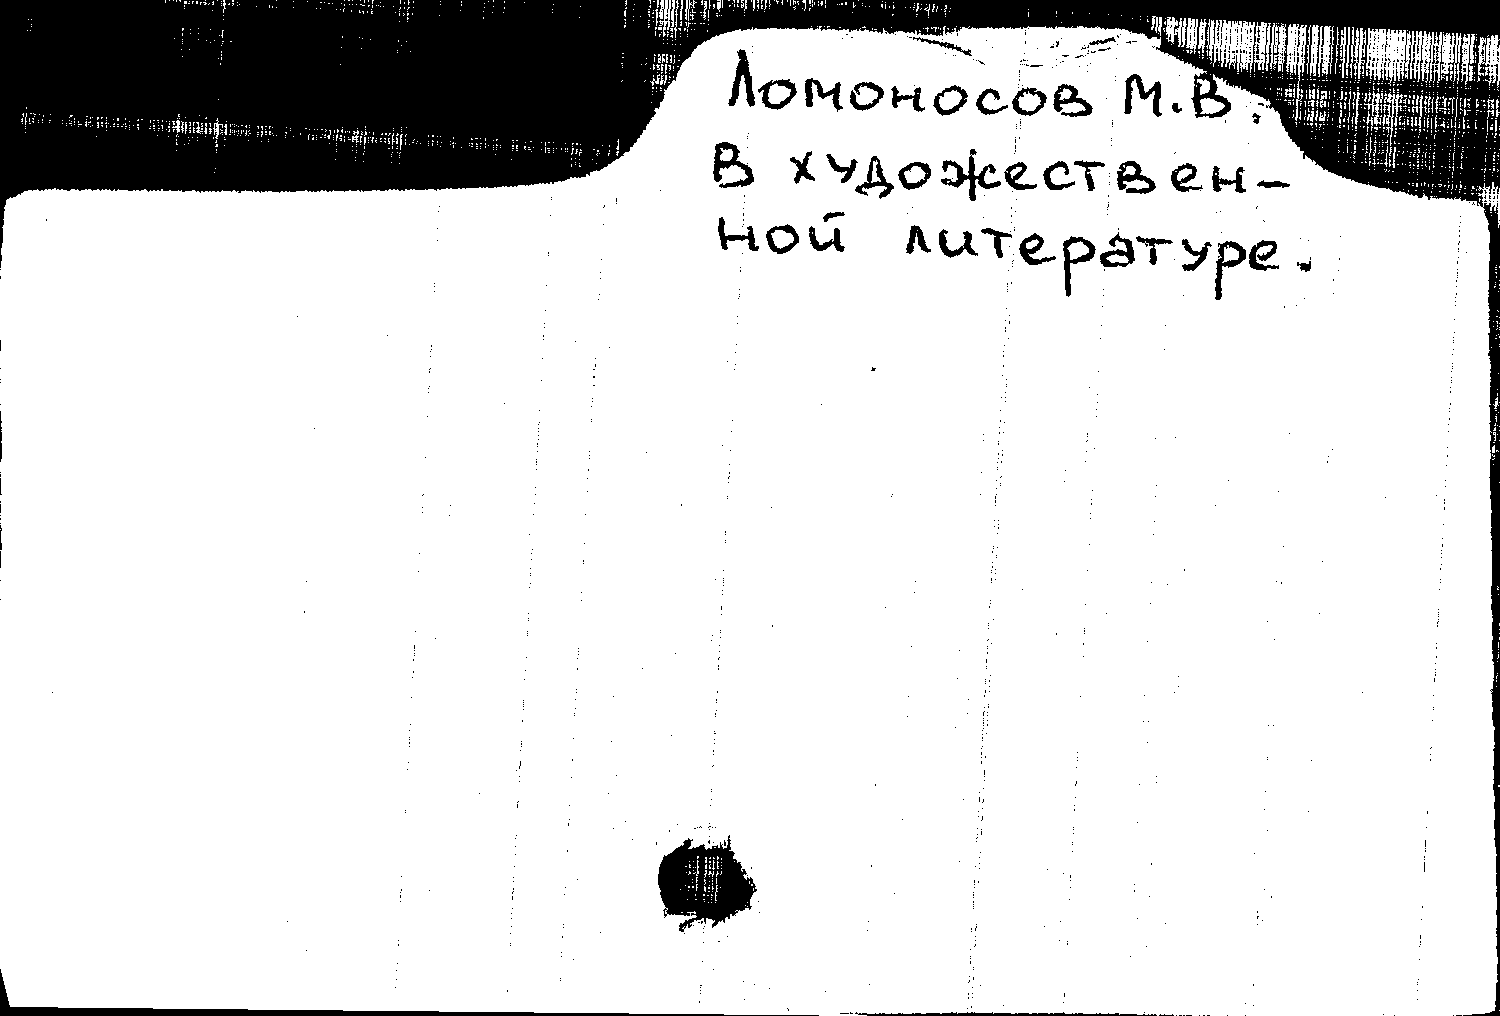 Ломоносов М.В.
В художествен-
ной литературе.